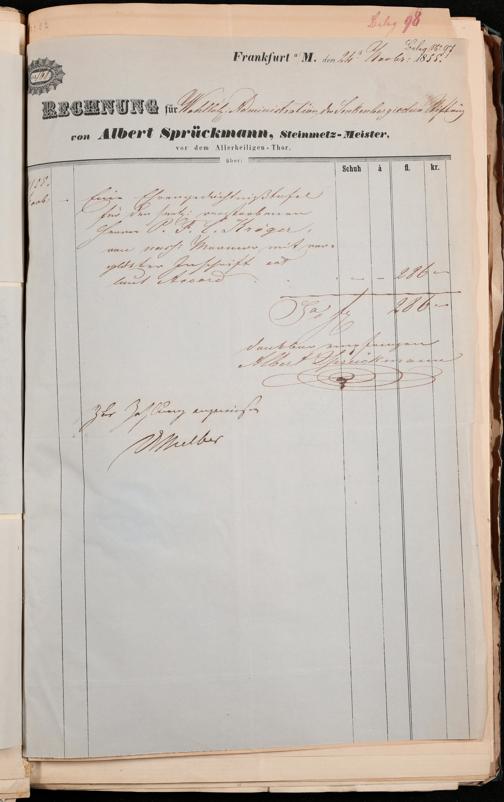 Beleg 98
Beleg No 97
Frankfurt a/M. den 24n Novbr: 1855.
RECHNUNG für Wohllöbl. Administration der Senkenbergischen Stiftung
von Albert Sprückmann, Steinmetz-Meister,
vor dem Allerheiligen-Thor.
über:
Schuh à fl. kr.
Eine Ehrengedächtnißtafel
für den verstorbenen
Herrn P. F. C. Kröger,
von Marmor mit ver-
goldeter Inschrift
laut Accord 286 –
286 –
dankbar empfangen
Albert Sprückmann
Zur Zahlung angewiesen